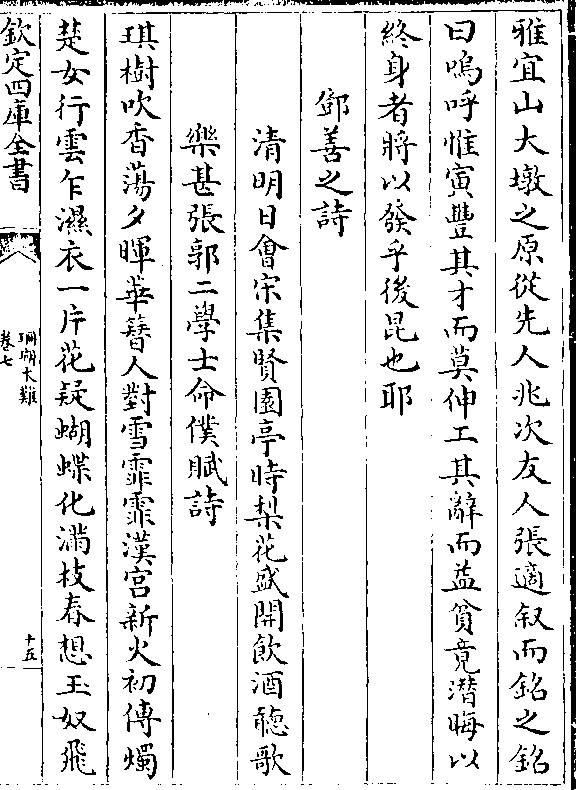 雅宜山大墩之原從先人兆次友人張適叙而銘之銘
曰嗚呼惟寅豐其才而莫伸工其辭而益貧竟潜晦以
終身者將以發乎後昆也耶
鄧善之詩
清明日會宋集賢園亭時梨花盛開飲酒聽歌
樂甚張郭二學士命僕賦詩
琪樹吹香蕩夕暉華簪人對雪霏霏漢宫新火初傳燭
楚女行雲乍濕衣一片花疑蝴蝶化滿枝春想玉奴飛
欽定四庫全書
珊瑚木難
卷七
十五